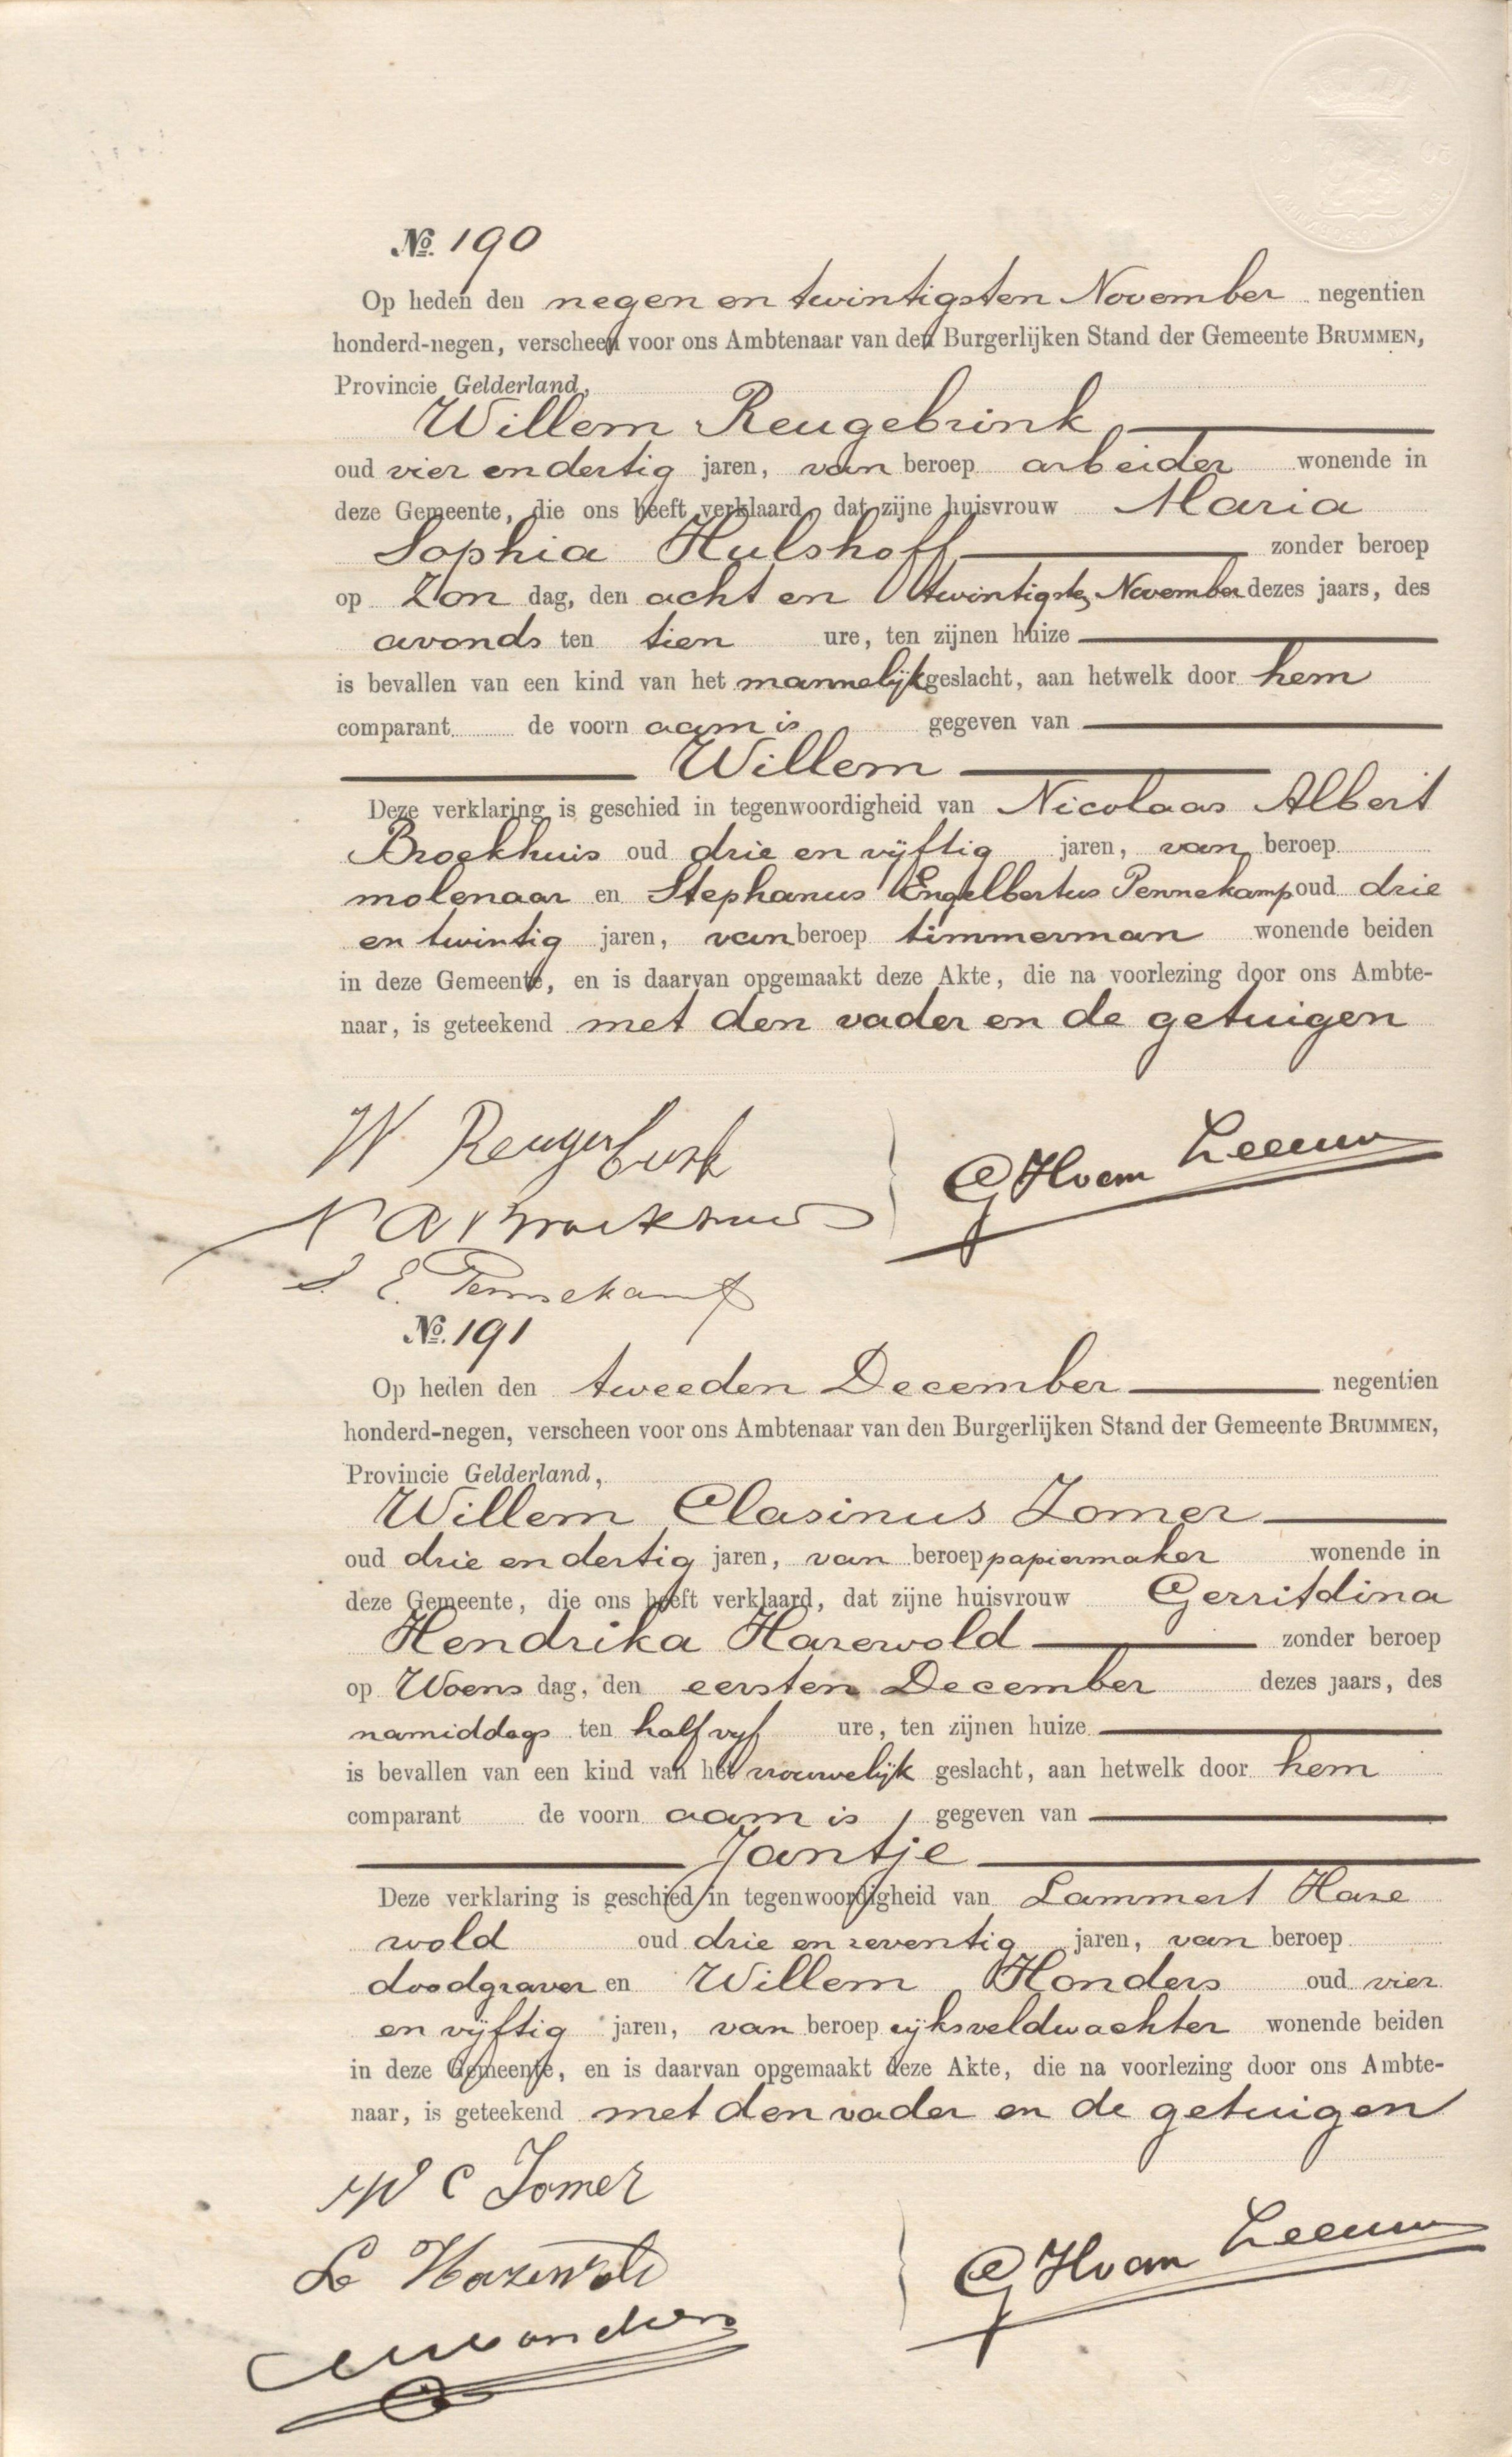 №. 190
Op heden den negen en twintigsten November negentien
honderd-negen, verscheen voor ons Ambtenaar van den Burgerlijken Stand der Gemeente BRUMMEN,
Provincie Gelderland,
Willem Reugebrink
oud vier en dertig jaren, van beroep arbeider wonende in
deze Gemeente, die ons heeft verklaard, dat zijne huisvrouw Maria
Sophia Hulshoff zonder beroep
op Zon dag, den acht en twintigsten November dezes jaars, des
avonds ten tien ure, ten zijnen huize
is bevallen van een kind van het mannelijk geslacht, aan hetwelk door hem
comparant de voorn aam is gegeven van
Willem
Deze verklaring is geschied in tegenwoordigheid van Nicolaas Albert
Broekhuis oud drie en vijftig jaren, van beroep
molenaar en Stephanus Engelbertus Pennekamp oud drie
en twintig jaren, van beroep timmerman wonende beiden
in deze Gemeente, en is daarvan opgemaakt deze Akte, die na voorlezing door ons Ambte-
naar, is geteekend met den vader en de getuigen
W Reugebrink
G H van Leeuw
N A Broekhuis
S. E. Pennekamp
№. 191
Op heden den tweeden December negentien
honderd-negen, verscheen voor ons Ambtenaar van den Burgerlijken Stand der Gemeente BRUMMEN,
Provincie Gelderland,
Willem Clasinus Zomer
oud drie en dertig jaren, van beroep papiermaker wonende in
deze Gemeente, die ons heeft verklaard, dat zijne huisvrouw Gerritdina
Hendrika Harewold zonder beroep
op Woens dag, den eersten December dezes jaars, des
namiddags ten half vijf ure, ten zijnen huize
is bevallen van een kind van het vrouwelijk geslacht, aan hetwelk door hem
comparant de voorn aam is gegeven van
Jantje
Deze verklaring is geschied in tegenwoordigheid van Lammert Hare
wold oud drie en zeventig jaren, van beroep
doodgraver en Willem Honders oud vier
en vijftig jaren, van beroep rijksveldwachter wonende beiden
in deze Gemeente, en is daarvan opgemaakt deze Akte, die na voorlezing door ons Ambte-
naar, is geteekend met den vader en de getuigen
W C Zomer
L Harewold
G H van Leeuw